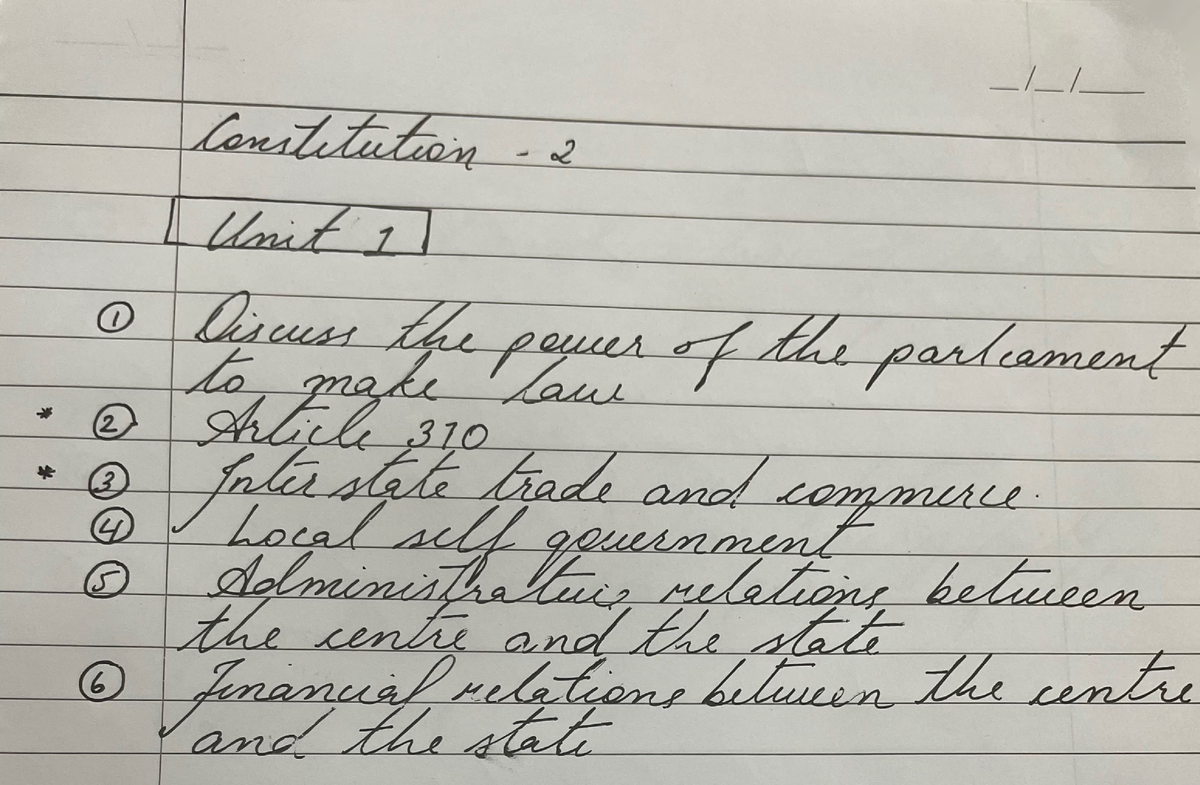 _/_/__
Constitution - 2
Unit 1
① Discuss the power of the parliament
to make law
* ② Article 370
* ③ Inter state trade and commerce.
④ Local self government
⑤ Administrative relations between
the centre and the state
⑥ Financial relations between the centre
and the state